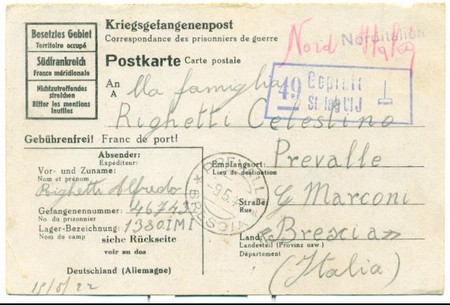 Besetztes Gebiet
Territoire occupé
Südfrankreich
France méridionale
Nichtzutreffendes
streichen
Biffer les mentions
inutiles
Kriegsgefangenenpost
Correspondance des prisonniers de guerre
Postkarte Carte postale
Norditalien
Nord Italien
49 Geprüft
An
A
Alla famiglia
Righetti Celestino
Gebührenfrei! Franc de port!
Absender:
Expéditeur:
Vor- und Zuname:
Nom et prénom
Righetti Alfredo
Gefangenennummer: 46743
No du prisonnier
Lager-Bezeichnung:
Nom du camp
siehe Rückseite
voir au dos
Deutschland (Allemagne)
Empfangsort: Prevalle
Lieu de destination
Straße: G Marconi
Rue
Land: «Brescia»
Landesteil (Provinz usw.)
Département
(Italia)